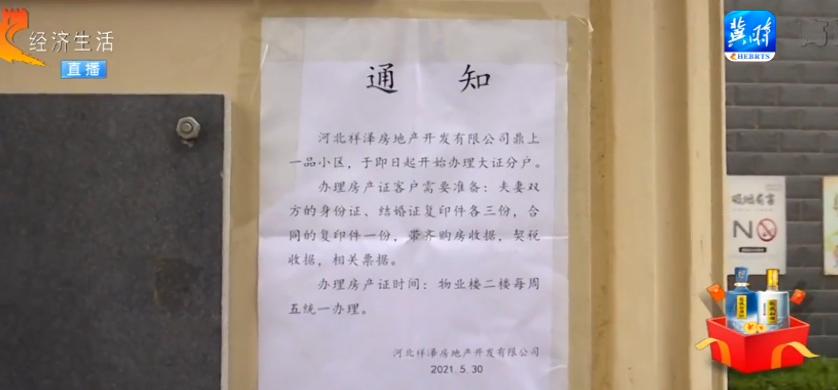 经济生活
直播
冀时
HEBRTS
通 知
河北祥泽房地产开发有限公司鼎上
一品小区，于即日起开始办理大证分户。
办理房产证客户需要准备：夫妻双
方的身份证、结婚证复印件各三份，合
同的复印件一份，带齐购房收据，契税
收据，相关票据。
办理房产证时间：物业楼二楼每周
五统一办理。
河北祥泽房地产开发有限公司
2021.5.30
吸烟有害
N